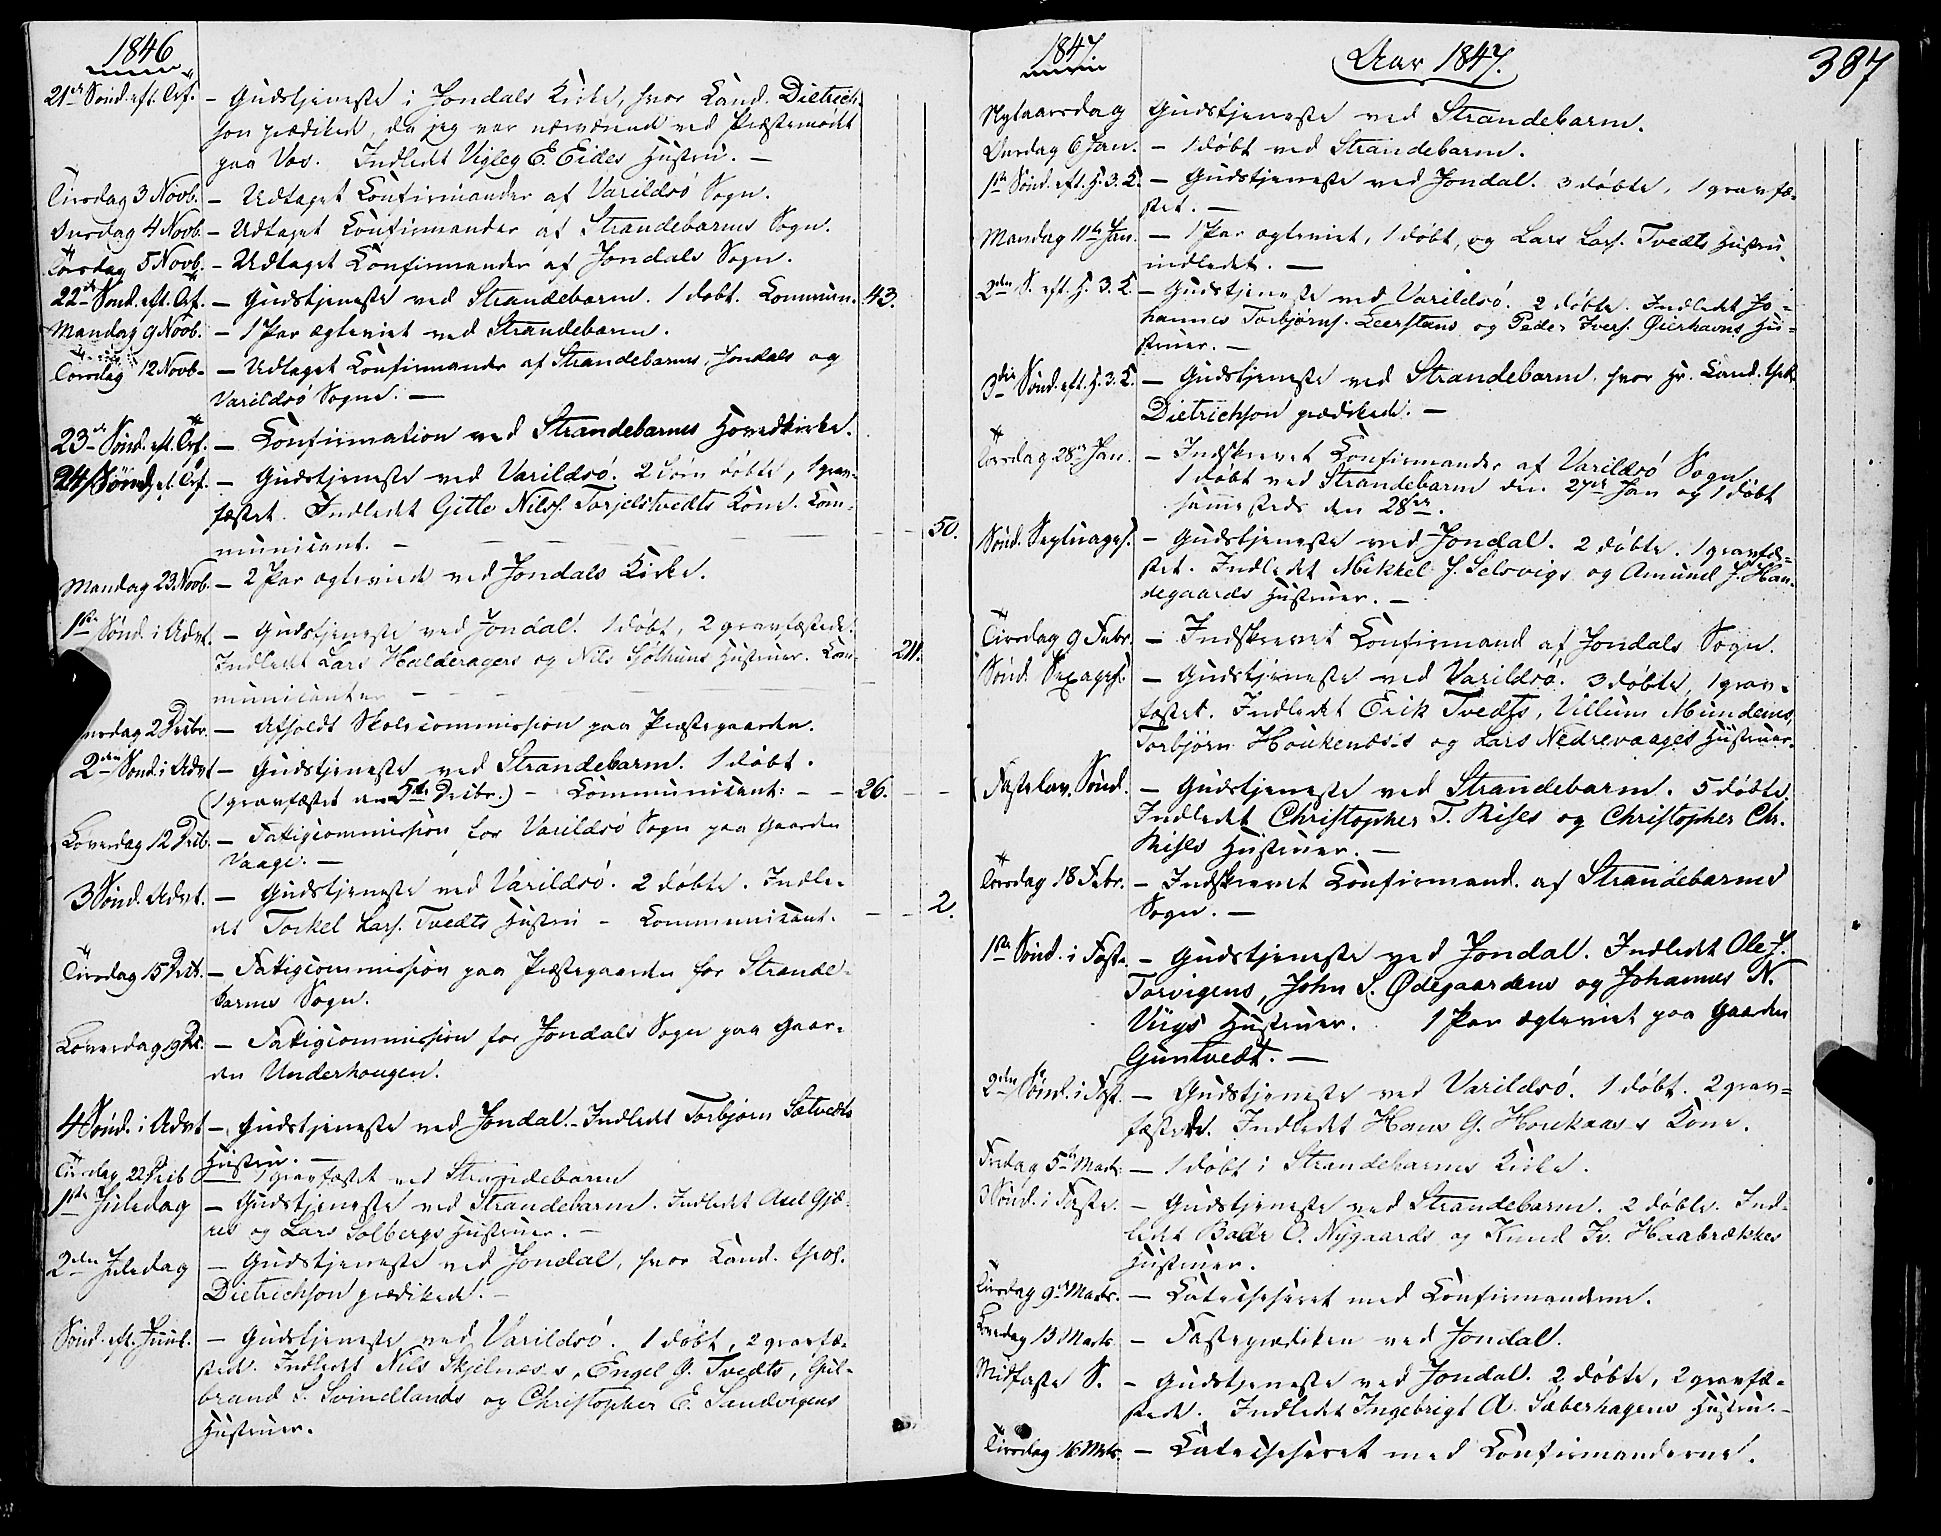 1846
21de Sönd. eft. Tref. – Gudstjeneste i Jondals Kirke, hvor Cand. Dietrich-
son prædikede, da jeg var nærværende ved Præstemödet
paa Vos. Indledet Vigleg E. Eides Hustru. –
Tirsdag 3 Novb. – Udtaget Confirmander af Varildsö Sogn.
Onsdag 4 Novb. – Udtaget Confirmander af Strandebarms Sogn.
Torsdag 5 Novb. – Udtaget Confirmander af Jondals Sogn.
22de Sönd. eft. Tref. – Gudstjeneste ved Strandebarm. 1 döbt. Commun. 43.
Mandag 9 Novb. – 1 Par ægteviet ved Strandebarm.
Torsdag 12 Novb. – Udtaget Confirmander af Strandebarms, Jondals og
Varildsö Sogne. –
23de Sönd. eft. Tref. – Confirmation ved Strandebarms Hovedkirke.
24 Sönd. eft. Tref. – Gudstjeneste ved Varildsö. 2 Börn döbte, 1 grav-
fæstet. Indledet Gitle Nils. Torjelstvedts Kone. Com-
municant. – 50.
Mandag 23 Novb. – 2 Par ægteviede ved Jondals Kirke.
1ste Sönd. i Advt. – Gudstjeneste ved Jondal. 1 döbt, 2 gravfæstede.
Indledet Lars Halderagers og Nils Sjöthuns Hustruer. Com- 211.
municanter
Onsdag 2 Decbr. – Afholdt Skolecommission paa Præstegaarden.
2den Sönd. i Advt – Gudstjeneste ved Strandebarm. 1 döbt.
(1 gravfæstet den 5te Decbr.) – Communicant: – – 26.
Löverdag 12 Decb. – Fattigcommission for Varildsö Sogn paa Gaarden
Vaage. –
3 Sönd. Advt. – Gudstjeneste ved Varildsö. 2 döbte. Indle-
det Torkel Lars. Tvedts Hustru – Communicant. – – 2.
Tirsdag 15 Decb. – Fattigcommission paa Præstegaarden for Strande-
barms Sogn.
Löverdag 19 Dec. – Fattigcommission for Jondals Sogn paa Gaar-
den Underhougen.
4 Sönd. i Advt – Gudstjeneste ved Jondal. – Indledet Torbjörn Sætvedts
Hustru. –
Tirsdag 22 Decb. 1 gravfæstet ved Strandebarm
1ste Juledag – Gudstjeneste ved Strandebarm. Indledet Axel Gjæ-
res og Lars Solbergs Hustruer. –
2den Juledag – Gudstjeneste ved Jondal, hvor Cand. theol.
Dietrichson prædikede. –
Sönd. eft. Juul. – Gudstjeneste ved Varildsö. 1 döbt, 2 gravfæ-
stede. Indledet Nils Skjelnæs's, Engel G. Tvedts, Gul-
brand S. Svindlands og Christopher E. Sandvigens
Hustruer.
1847. Aar 1847. 387
Nytaarsdag Gudstjeneste ved Strandebarm.
Onsdag 6 Jan. – 1 döbt ved Strandebarm.
1ste Sönd. eft. H. 3. K. – Gudstjeneste ved Jondal. 3 döbte, 1 gravfæ-
stet. –
Mandag 11te Jan. – 1 Par ægteviet, 1 döbt, og Lars Lars. Tvedts Hustru
indledet. –
2den S. eft. H. 3. K. – Gudstjeneste ved Varildsö. 2 döbte. Indledet Jo-
hannes Torbjörns. Leerstans og Peder Ivers. Öierhavns Hu-
struer. –
3die Sönd. eft. H. 3. K. – Gudstjeneste ved Strandebarm, hvor Hr. Cand. theol.
Dietrichson prædikede. –
Torsdag 28de Jan. – Indskrevet Confirmander af Varildsö Sogn.
1 döbt ved Strandebarm den 27de Jan og 1 döbt
sammesteds den 28de.
Sönd. Septuages. – Gudstjeneste ved Jondal. 2 döbte. 1 gravfæ-
stet. Indledet Mikkel J. Selsvigs og Amund J. Han-
degaards Hustruer. –
Tirsdag 9 Febr. – Indskrevet Confirmand. af Jondals Sogn.
Sönd. Sexages. – Gudstjeneste ved Varildsö. 3 döbte, 1 grav-
fæstet. Indledet Erik Tvedts, Villum Mundeims,
Torbjörn Houkenæs's og Lars Nedrevaages Hustruer.
Fastelav. Sönd. – Gudstjeneste ved Strandebarm. 5 döbte.
Indledet Christopher T. Rises og Christopher Chr.
Rises Hustruer. –
Torsdag 18 Febr. – Indskrevet Confirmand. af Strandebarms
Sogn. –
1ste Sönd. i Faste. – Gudstjeneste ved Jondal. Indledet Ole J.
Torvigens, John S. Ødegaardens og Johannes N.
Viigs Hustruer. 1 Par ægteviet paa Gaarden
Guntvedt. –
2den Sönd. i Fast. – Gudstjeneste ved Varildsö. 1 döbt. 2 grav-
fæstede. Indledet Hans G. Houkaas's Kone.
Fredag 5te Marts. – 1 döbt i Strandebarms Kirke.
3 Sönd. i Faste. – Gudstjeneste ved Strandebarm. 2 döbte. Ind-
ledet Baär O. Nygaards og Knud Iv. Haabrækkes
Hustruer.
Tirsdag 9de Marts. – Catechiseret med Confirmanderne.
Löverdag 13 Marts. – Fasteprædiken ved Jondal.
Midfaste S. – Gudstjeneste ved Jondal. 2 döbte, 2 gravfæ-
stede. Indledet Ingebrigt A. Sæberhagens Hustru. –
Tirsdag 16 Mrts. – Catechiseret med Confirmanderne.